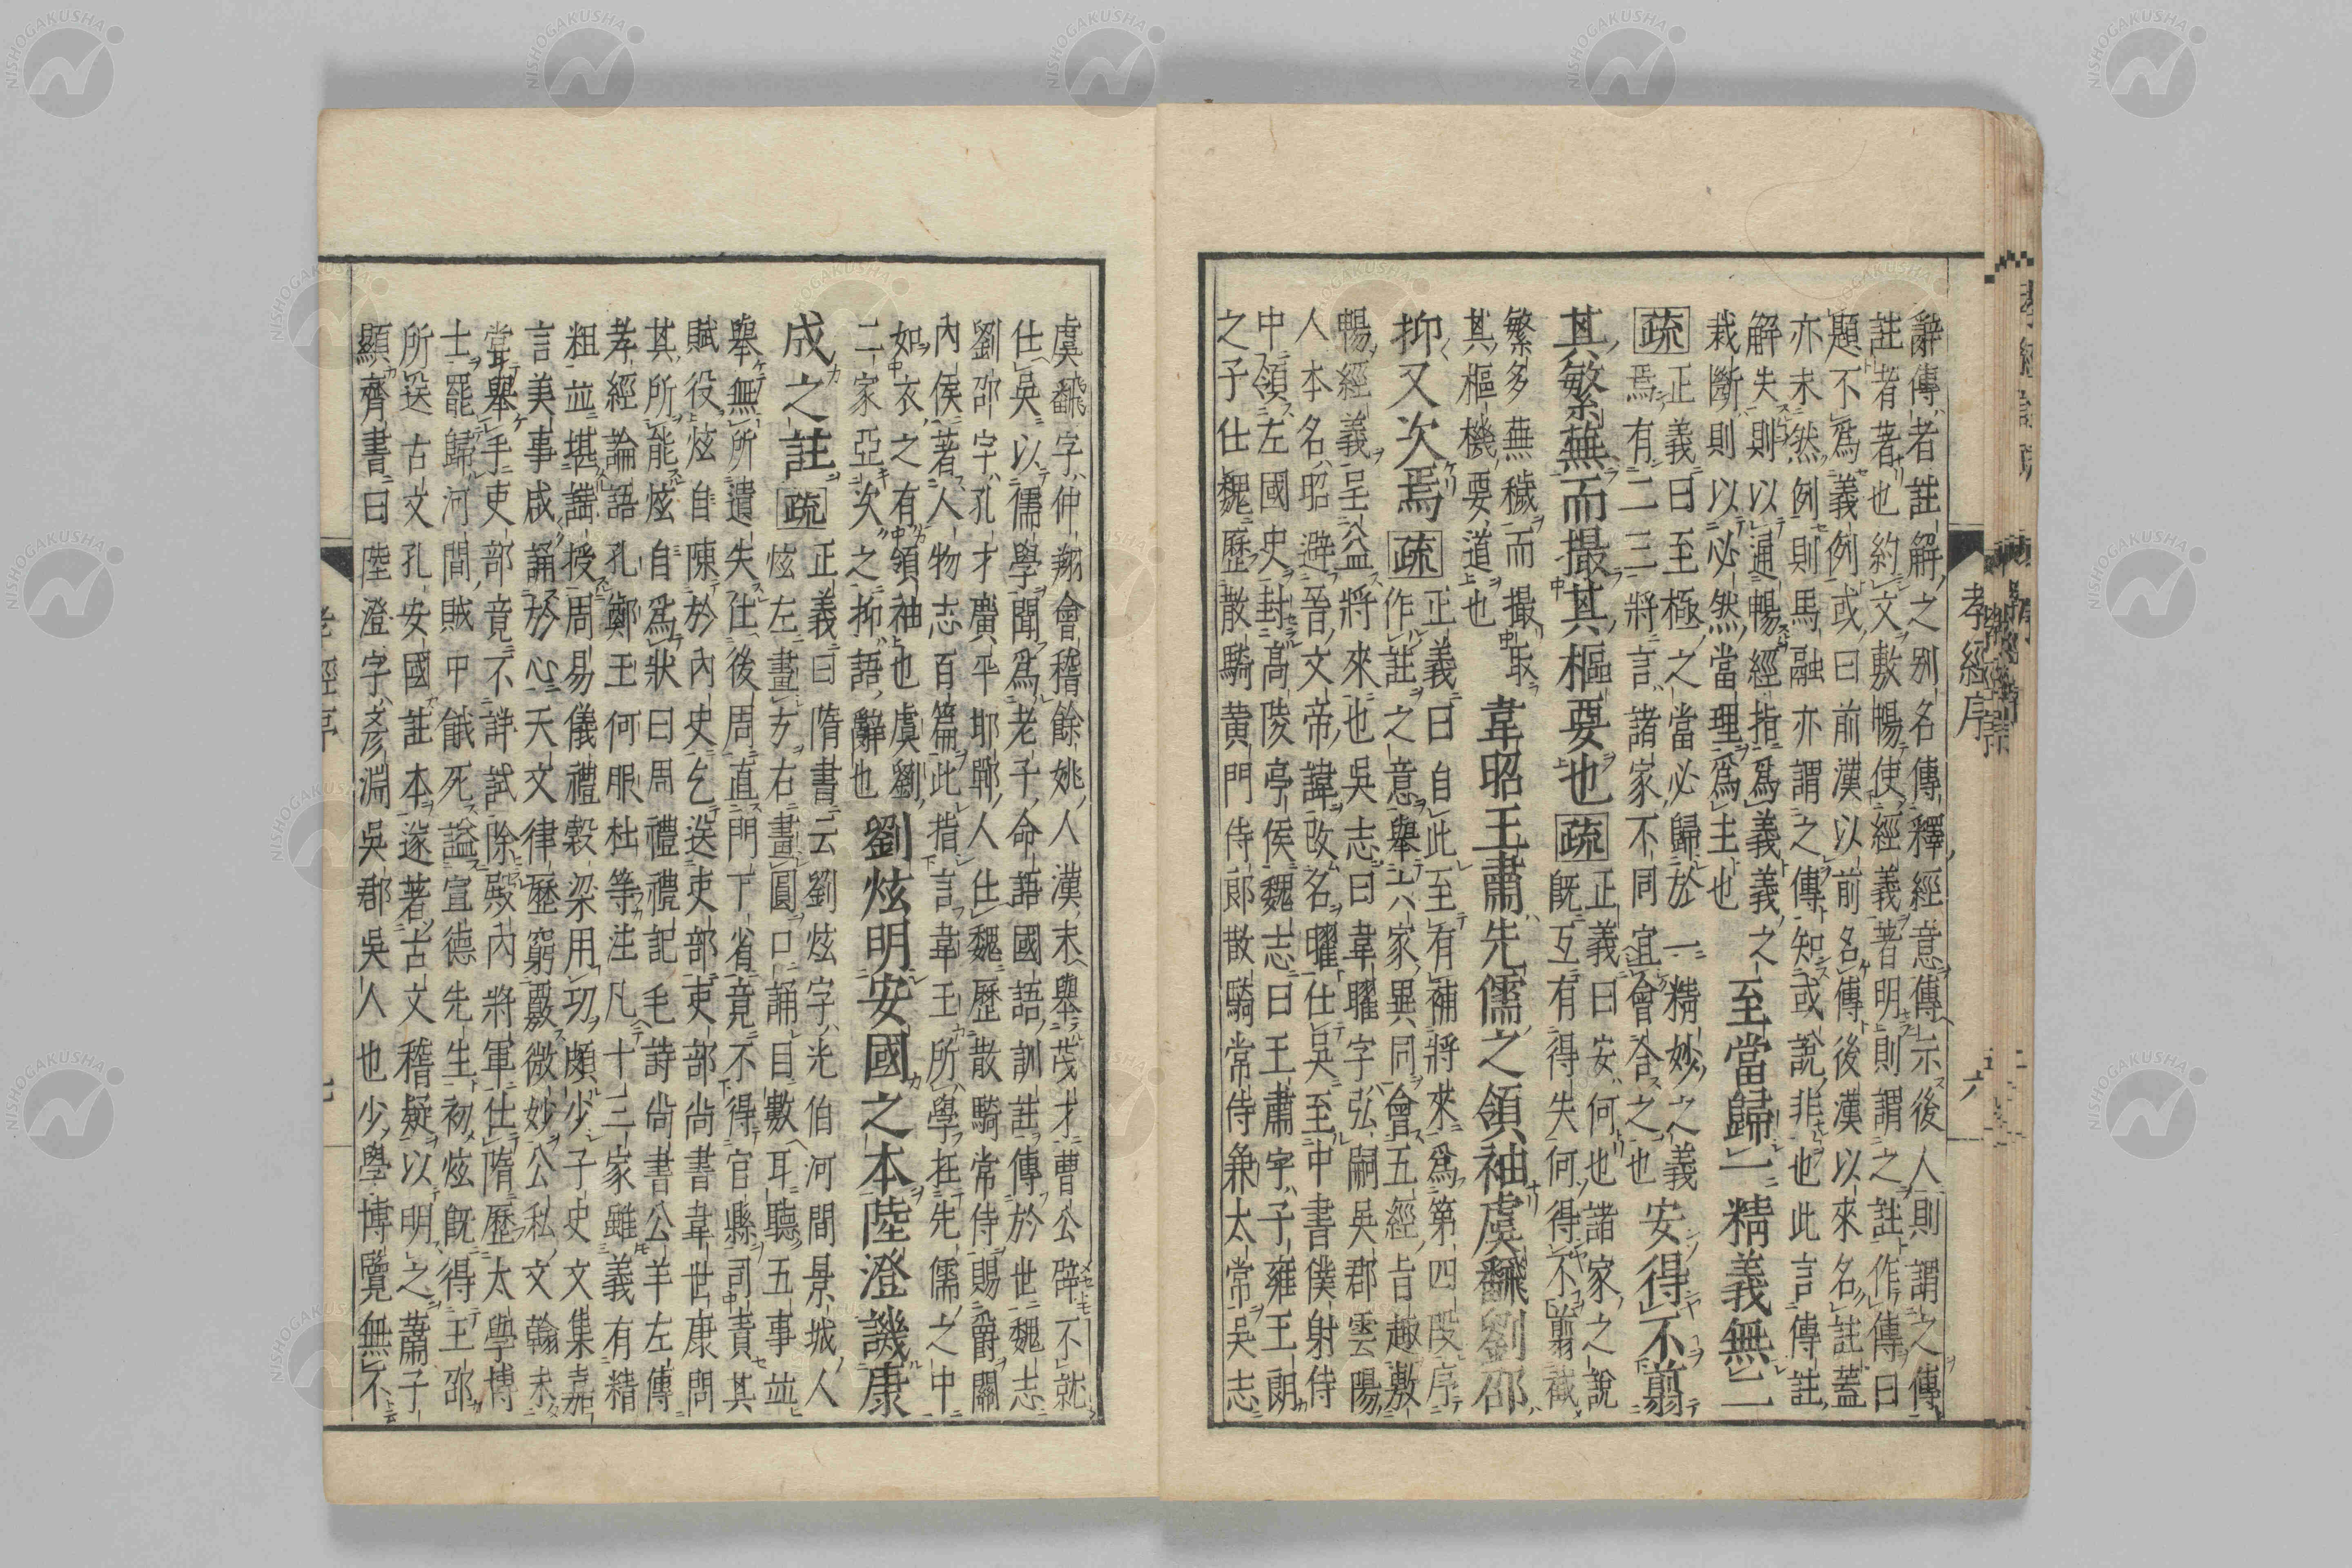 孝經序
六
辭傳者註解之別名傳釋經意傳示後人則謂之傳
註者著也約文敷暢使經義著明則謂之註作傳曰
題不爲義例或曰前漢以前名傳後漢以來名註蓋
亦未然例則馬融亦謂之傳知或說非也此言傳註
解失則以通暢經指爲義義之
裁斷則以必然當理爲主也 至當歸一精義無二
疏 正義曰至極之當必歸於一精妙之義
焉有二三將言諸家不同宜會合之也 安得不翦
其繁蕪而撮其樞要也 疏 正義曰安何也諸家之說
既互有得失何得不翦截
繁多蕪穢而撮取
其樞機要道也 韋昭王肅先儒之領袖虞翻劉邵
抑又次焉 疏 正義曰自此至有補將來爲第四段序
作註之意舉六家異同會五經旨趣敷
暢經義呈益將來也吳志曰韋曜字弘嗣吳郡雲陽
人本名昭避晉文帝諱改名曜仕吳至中書僕射侍
中領左國史封高陵亭侯魏志曰王肅字子雍王朗
之子仕魏歷散騎黄門侍郎散騎常侍兼太常吳志
虞翻字仲翔會稽餘姚人漢末舉茂才曹公辟不就
仕吳以儒學聞爲老子命語國語訓註傳於世魏志
劉邵字孔才廣平耶鄲人仕魏歷散騎常侍賜爵關
內侯著人物志百篇此指言韋王所學在先儒之中
如衣之有領袖也虞劉
二家亞次之抑語辭也 劉炫明安國之本陸澄譏康
成之註 疏 正義曰隋書云劉炫字光伯河間景城人
炫左畫方右畫圓口誦目數耳聽五事並
舉無所遺失仕後周直門下省竟不得官縣司責其
賦役炫自陳於內史乞送吏部吏部尚書韋世康問
其所能炫自爲狀曰周禮禮記毛詩尚書公羊左傳
孝經論語孔鄭王何服杜等注凡十三家雖義有精
粗並堪講授周易儀禮穀梁用功頗少子史文集嘉
言美事咸誦於心天文律歷窮覈微妙公私文翰未
嘗舉手吏部竟不詳試除殿內將軍仕隋歷太學博
士罷歸河間賊中餓死謚宣德先生初炫既得王邵
所送古文孔安國註本遂著古文稽疑以明之蕭子
顯齊書曰陸澄字彥淵吳郡吳人也少學博覽無不
NISHOGAKUSHA